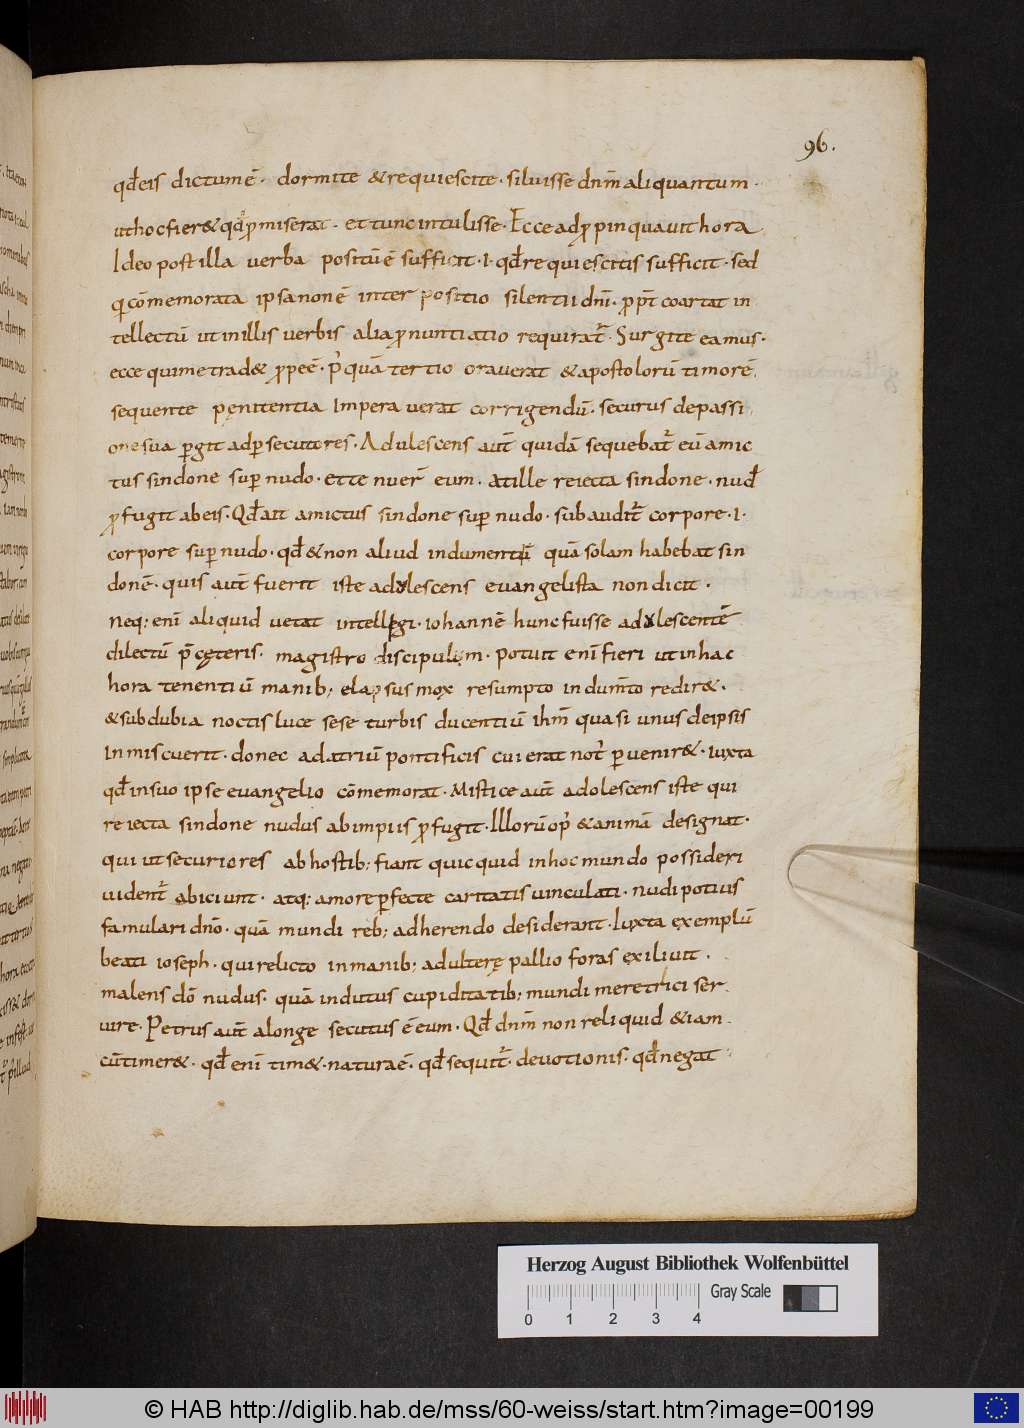 96.
qđeis dictum ē · dormite & requiescite · siluisse dnm̄ aliquantum ·
ut hoc fier& qđ p̱miserat · et tunc intulisse · Ecce adp̱pinquauit hora ·
Ideo post illa uerba positū ē sufficit · i · qđ requiescitis sufficit · sed
q̇ cōmemorata ipsa non ē interpositio silentii dn̄i · p̱pt̄ coartat in
tellectū ut in illis uerbis alia p̱nuntiatio requirat̄ · Surgite eamus ·
ecce qui me trad& p̱pe ē · p̓quā tertio orauerat & apostolorū timorē ·
sequente pęnitentia imperauerat corrigendū · securus de passi
one sua p̱git ad p̱secutores · Adulescens aut̄ quidā sequebat̄ eū amic
tus sindone sup̱ nudo · et tenuer̄ eum · at ille reiecta sindone · nuđ
p̱fugit ab eis · Qđ ait amictus sindone sup̱ nudo · subaudit̄ corpore · i ·
corpore sup̱ nudo · qđ & non aliud indumentū quā solam habebat sin
donē · quis aut̄ fuerit iste adolescens euangelista non dicit ·
neq; enī aliquid uetat intellegi · iohannē hunc fuisse adolescentē
dilectū p̄ cęteris · magistro discipulum · potuit enī fieri ut in hac
hora tenentiū manib; elapsus mox resumpto indum̄to redir& ·
& sub dubia noctis luce sese turbis ducentiū ihm̄ quasi unus de ipsis
inmiscuerit · donec ad atriū pontificis cui erat not̓ p̱uenir& · iuxta
qđ in suo ipse euangelio cōmemorat · Mistice aut̄ adolescens iste qui
reiecta sindone nudus ab impiis p̱fugit · Illorū op̓ & animā designat ·
qui ut securiores ab hostib; fiant quicquid in hoc mundo possideri
uident̄ abiciunt · atq; amore p̱fecte caritatis uinculati · nudi potius
famulari dn̄o · quā mundi reb; adherendo desiderant · Iuxta exemplū
beati ioseph · qui relicto in manib; adulterę pallio foras exiliuit ·
malens dō nudus · quā indutus cupiditatib; mundi meretrici ser
uire · Petrus aut̄ a longe secutus ē eum · Qđ dnm̄ non reliquid & iam
cū timer& · qđ enī tim& · naturae ē · qđ sequit̄ · deuotionis · qđ negat
Herzog August Bibliothek Wolfenbüttel
Gray Scale
0 1 2 3 4
© HAB http://diglib.hab.de/mss/60-weiss/start.htm?image=00199